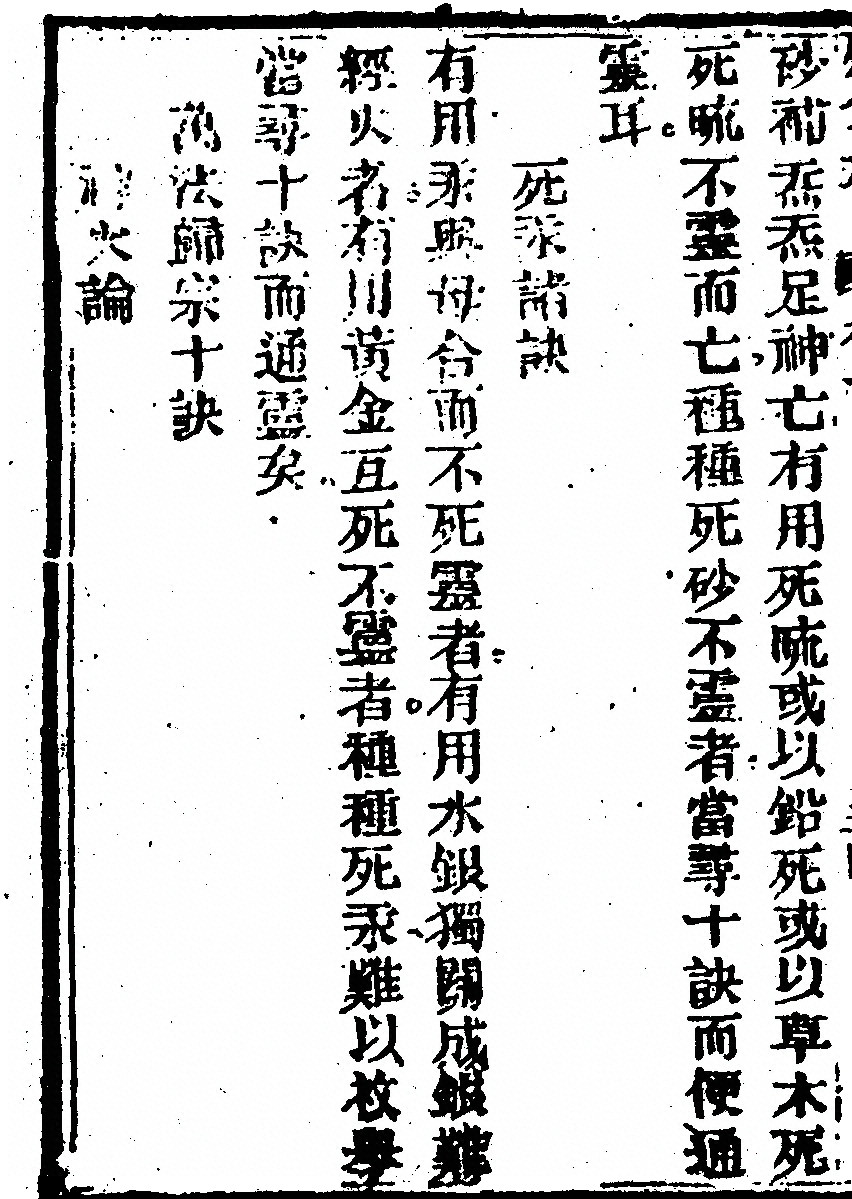 砂補炁炁足神亡有用死硫或以鉛死或以草木死
死硫不靈而亡種種死砂不靈者當尋十訣而便通
靈耳
死汞諸訣
有用汞與母合而不死靈者有用水銀獨關成銀難
經火者有用黃金互死不靈者種種死汞難以枚舉
當尋十訣而通靈矣
萬法歸宗十訣
火論